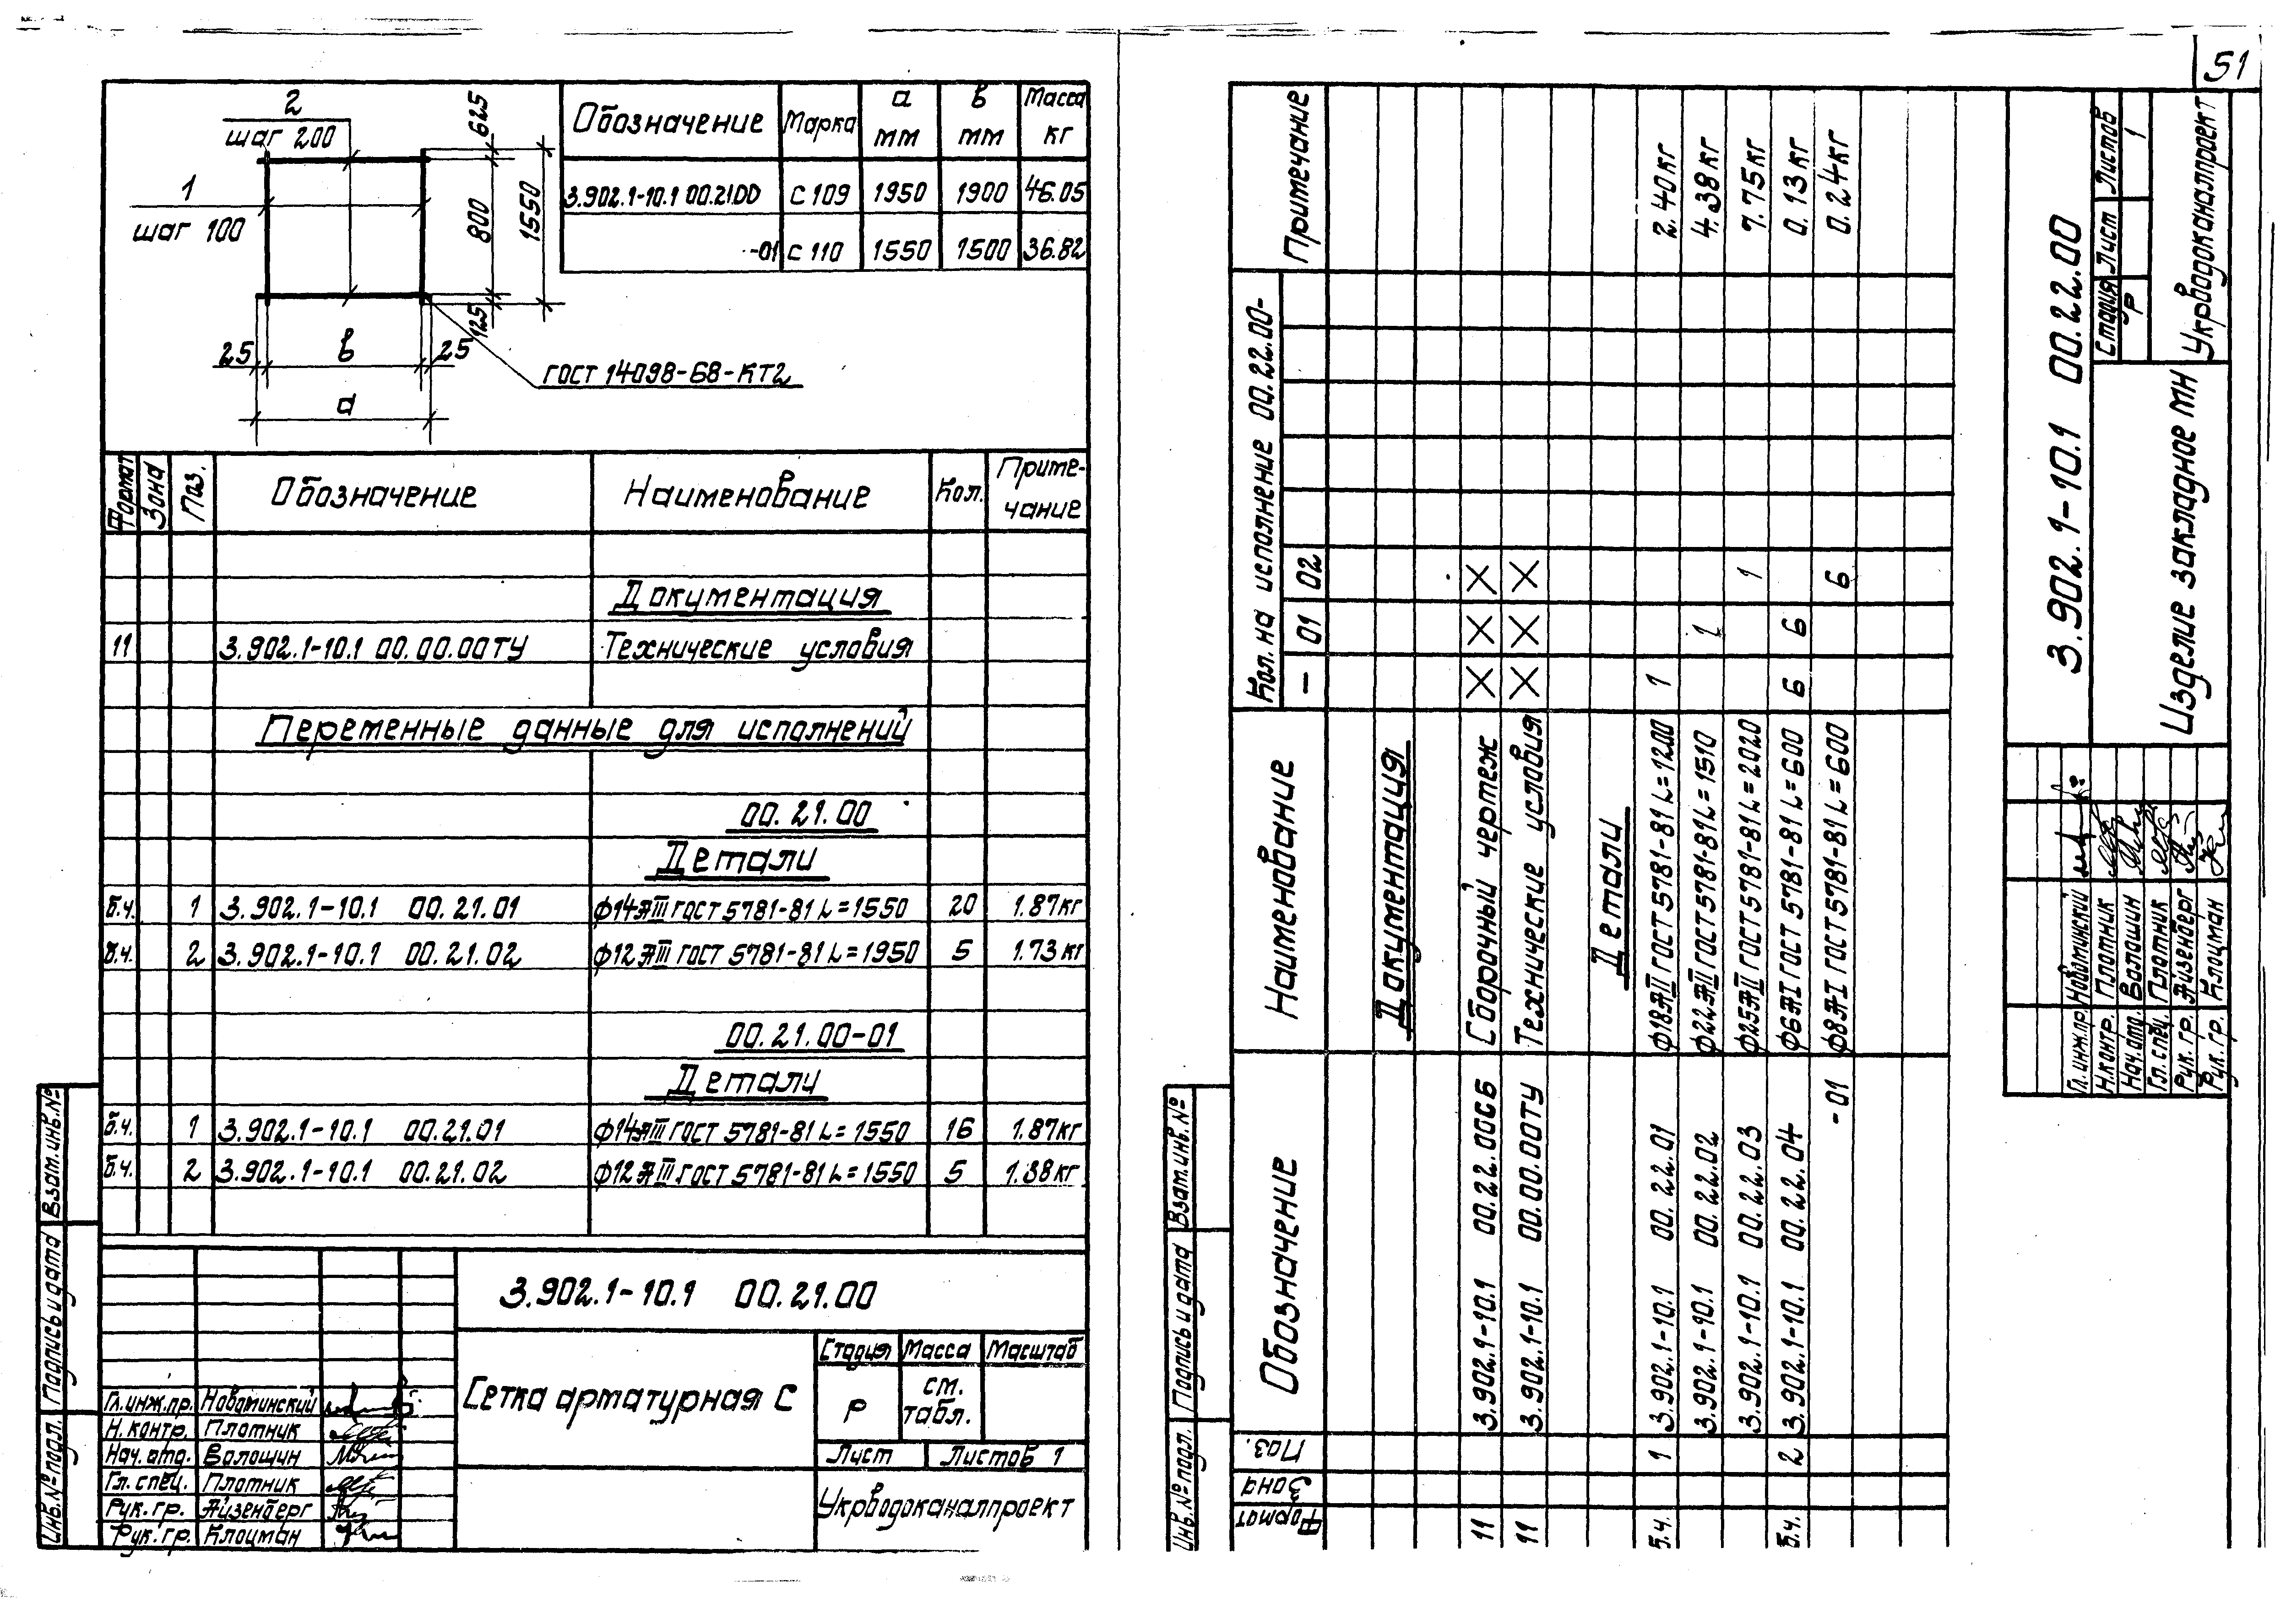 51
2
шаг 200
1
шаг 100
625
800
1550
125
25 в 25
а
ГОСТ 14098-68-КТ2
Обозначение Марка а мм в мм Масса кг
3.902.1-10.1 00.21.00 С 109 1950 1900 46.05
-01 С 110 1550 1500 36.82
Формат Зона Поз. Обозначение Наименование Кол. Приме-
чание
Документация
11 3.902.1-10.1 00.00.00ТУ Технические условия
Переменные данные для исполнений
00.21.00
Детали
б.ч. 1 3.902.1-10.1 00.21.01 ф14АIII ГОСТ 5781-81 L=1550 20 1.87кг
б.ч. 2 3.902.1-10.1 00.21.02 ф12АIII ГОСТ 5781-81 L=1950 5 1.73 кг
00.21.00-01
Детали
б.ч. 1 3.902.1-10.1 00.21.01 ф14АIII ГОСТ 5781-81 L=1550 16 1.87кг
б.ч. 2 3.902.1-10.1 00.21.02 ф12АIII ГОСТ 5781-81 L=1550 5 1.38кг
3.902.1-10.1 00.21.00
Сетка арматурная С
Стадия Масса Масштаб
Р см. табл.
Лист Листов 1
Укрводоканалпроект
Гл.инж.пр. Новоминский
Н.контр. Плотник
Нач.отд. Волошин
Гл. спец. Плотник
Рук. гр. Айзенберг
Рук. гр. Клоцман
Инв.№ подл. Подпись и дата Взам.инв.№
Формат Зона Поз. Обозначение Наименование Кол. на исполнение 00.22.00- Примечание
– 01 02
Документация
11 3.902.1-10.1 00.22.00СБ Сборочный чертеж X X X
11 3.902.1-10.1 00.00.00ТУ Технические условия X X X
Детали
Б.ч. 1 3.902.1-10.1 00.22.01 ф18АII ГОСТ 5781-81 L=1200 1 2.40кг
3.902.1-10.1 00.22.02 ф22АII ГОСТ 5781-81 L=1510 1 4.38кг
3.902.1-10.1 00.22.03 ф25АII ГОСТ 5781-81 L=2020 1 7.75кг
Б.ч. 2 3.902.1-10.1 00.22.04 ф6АI ГОСТ 5781-81 L=600 6 6 0.13кг
-01 ф8АI ГОСТ 5781-81 L=600 6 0.24кг
3.902.1-10.1 00.22.00
Изделие закладное МН
Стадия Лист Листов
Р 1
Укрводоканалпроект
Гл.инж.пр. Новоминский
Н.контр. Плотник
Нач.отд. Волошин
Гл.спец. Плотник
Рук. гр. Айзенберг
Рук. гр. Клоцман
Инв.№ подл. Подпись и дата Взам.инв.№